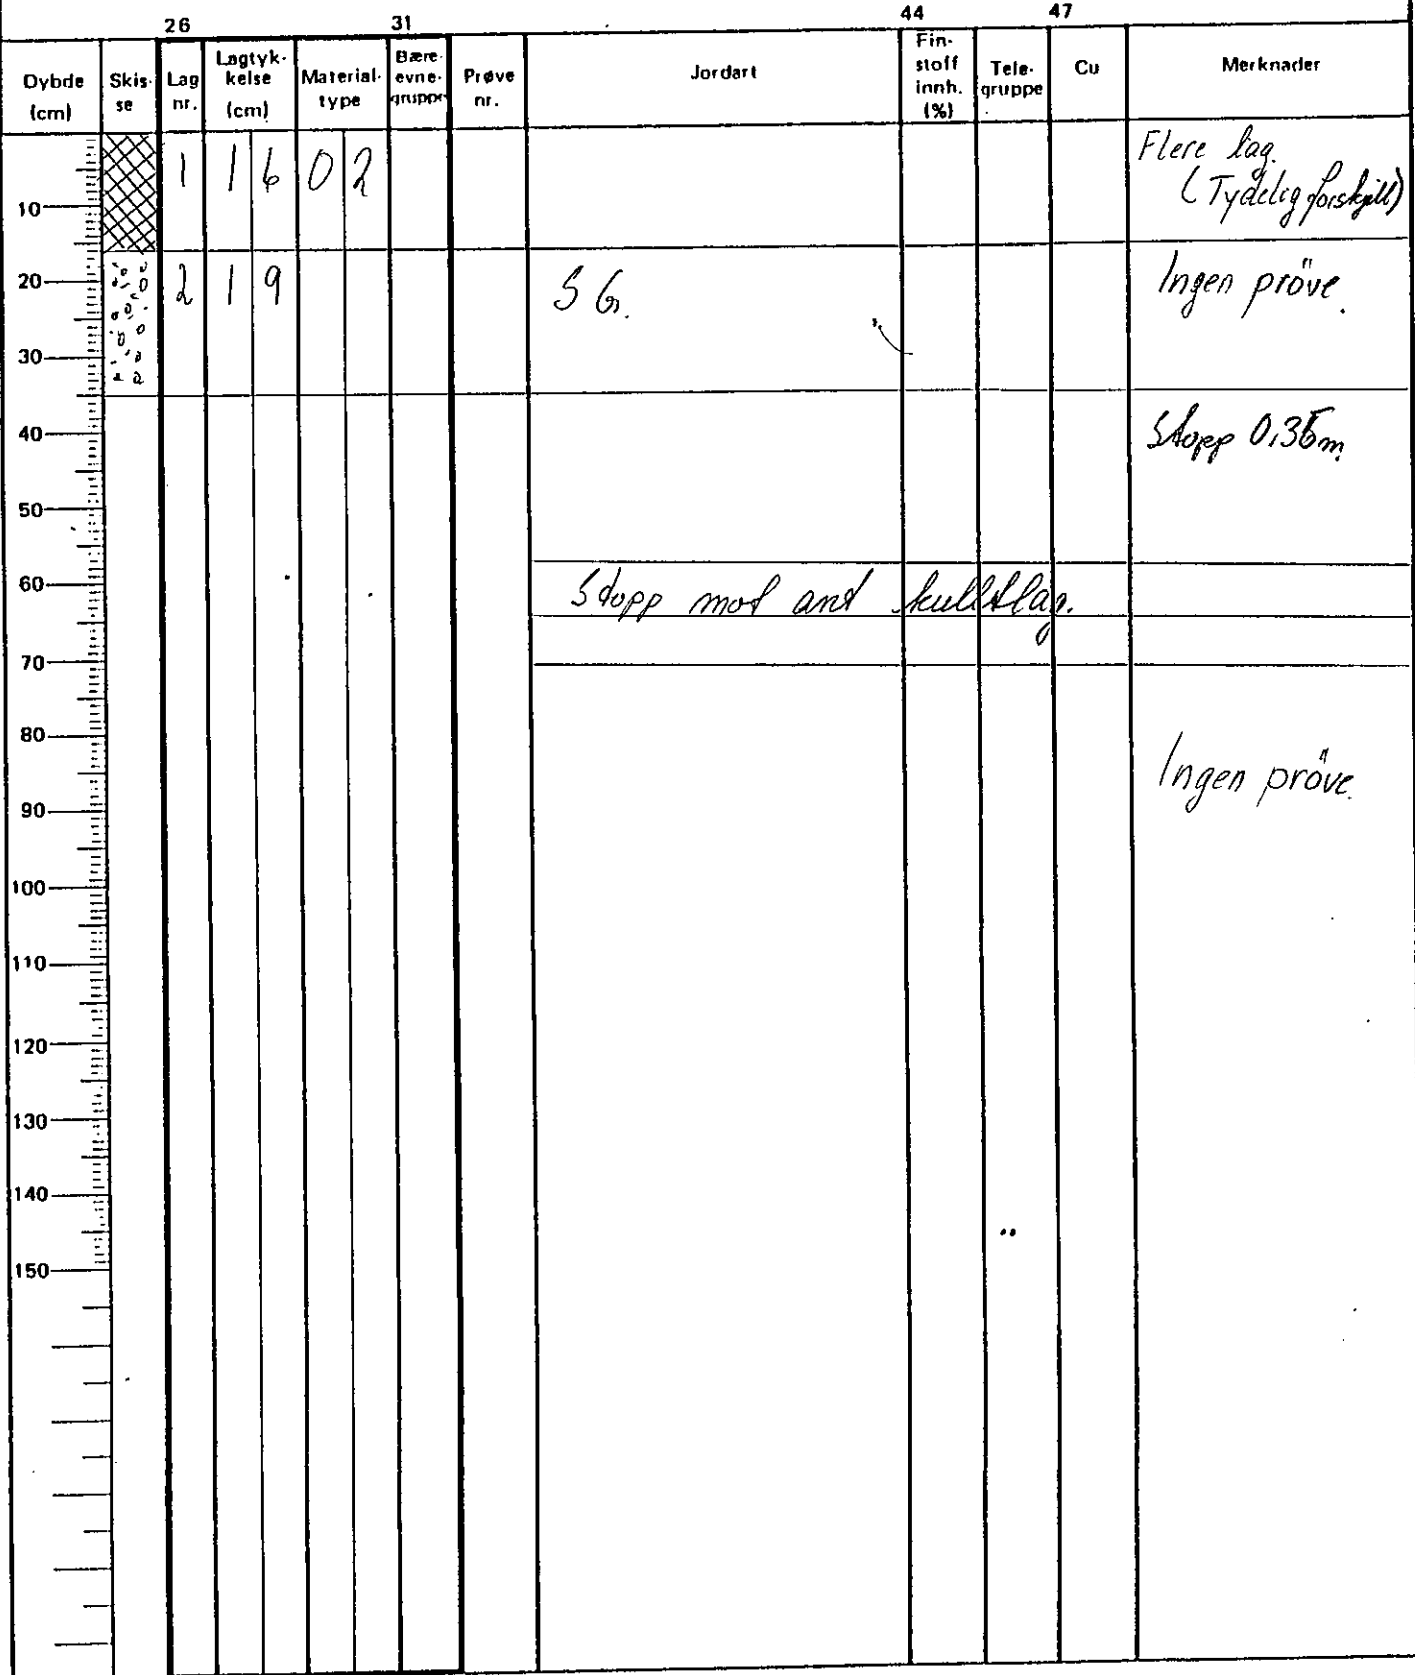 26 31 44 47
Dybde (cm) Skis- se Lag nr. Lagtyk- kelse (cm) Material- type Bære- evne- gruppe Prøve nr. Jordart Fin- stoff innh. (%) Tele- gruppe Cu Merknader
1 16 02 Flere lag.
(Tydelig forskjell)
10
20 2 19 S G. Ingen pröve.
30
40 Stopp 0,35m
50
60 Stopp mot ant kultlag.
70
80 Ingen pröve.
90
100
110
120
130
140
150